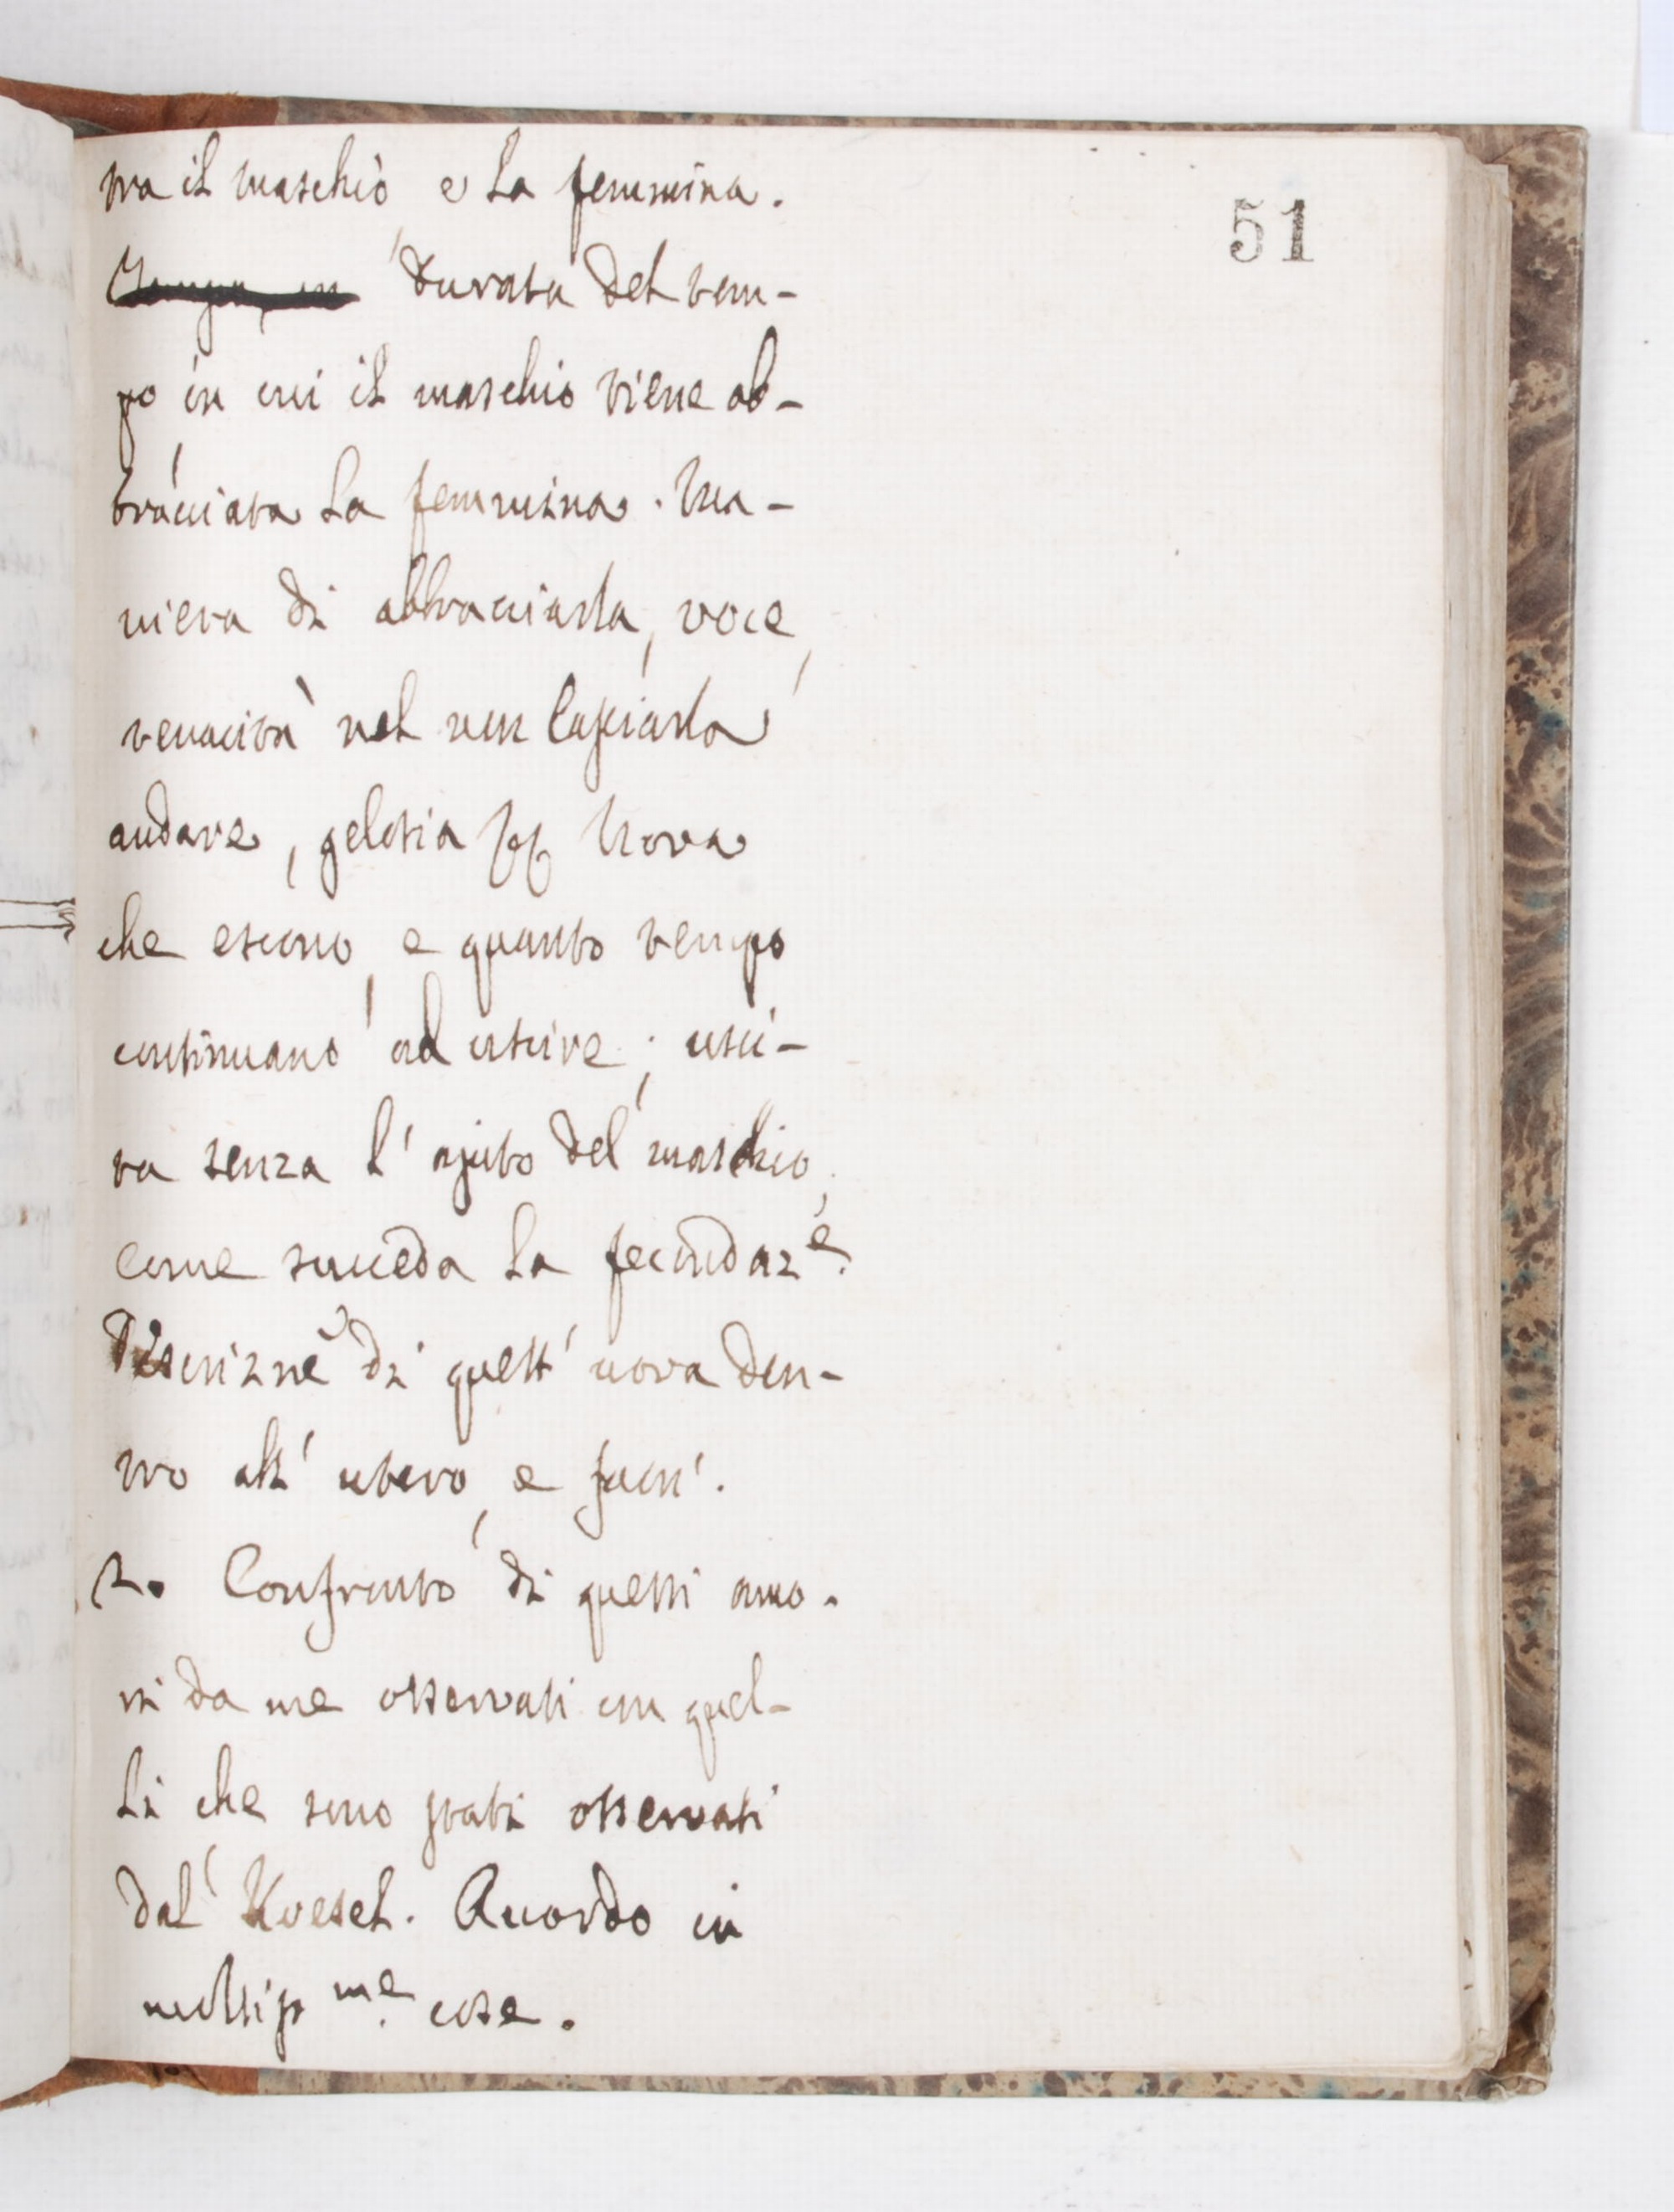 tra il maschio e la femmina.
51
durata del tem-
po in cui il maschio tiene ab-
bracciata la femmina. Ma-
niera di abbracciarla, voce,
tenacità nel non lasciarla
andare, gelosia Uova
che escono, e quanto tempo
continuano ad uscire; usci-
ta senza l'ajuto del maschio;
come succeda la fecondaz.e
Descrizne di quest' uova den-
tro all' utero, e fuori.
2. Confronto di questi amo-
ri da me osservati con quel-
li che sono stati osservati
dal Roesel. Accordo in
moltiss.me cose.